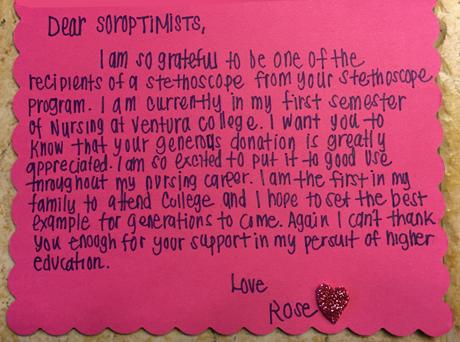 Dear SOROPTIMISTS,
I am so grateful to be one of the
recipients of a stethoscope from your stethoscope
program. I am currently in my first semester
of Nursing at Ventura College. I want you to
know that your generous donation is greatly
appreciated. I am so excited to put it to good use
throughout my nursing career. I am the first in my
family to attend College and I hope to set the best
example for generations to come. Again I can't thank
you enough for your support in my persuit of higher
education.
Love
Rose